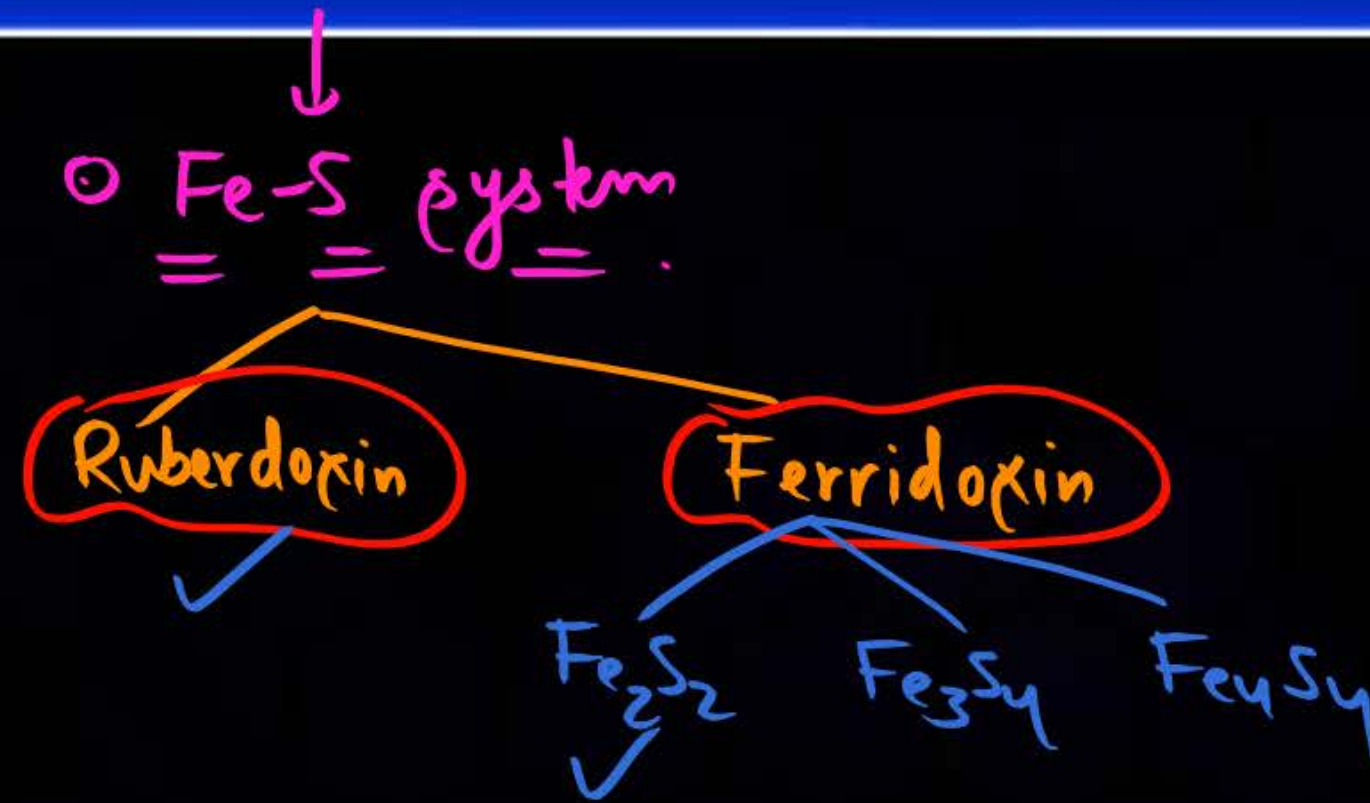 Fe-S system.
Ruberdoxin Ferridoxin
Fe₂S₂ Fe₃S₄ Fe₄S₄